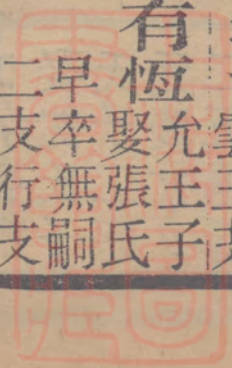 有恆
允王子
娶張氏
早卒無嗣
二支行支